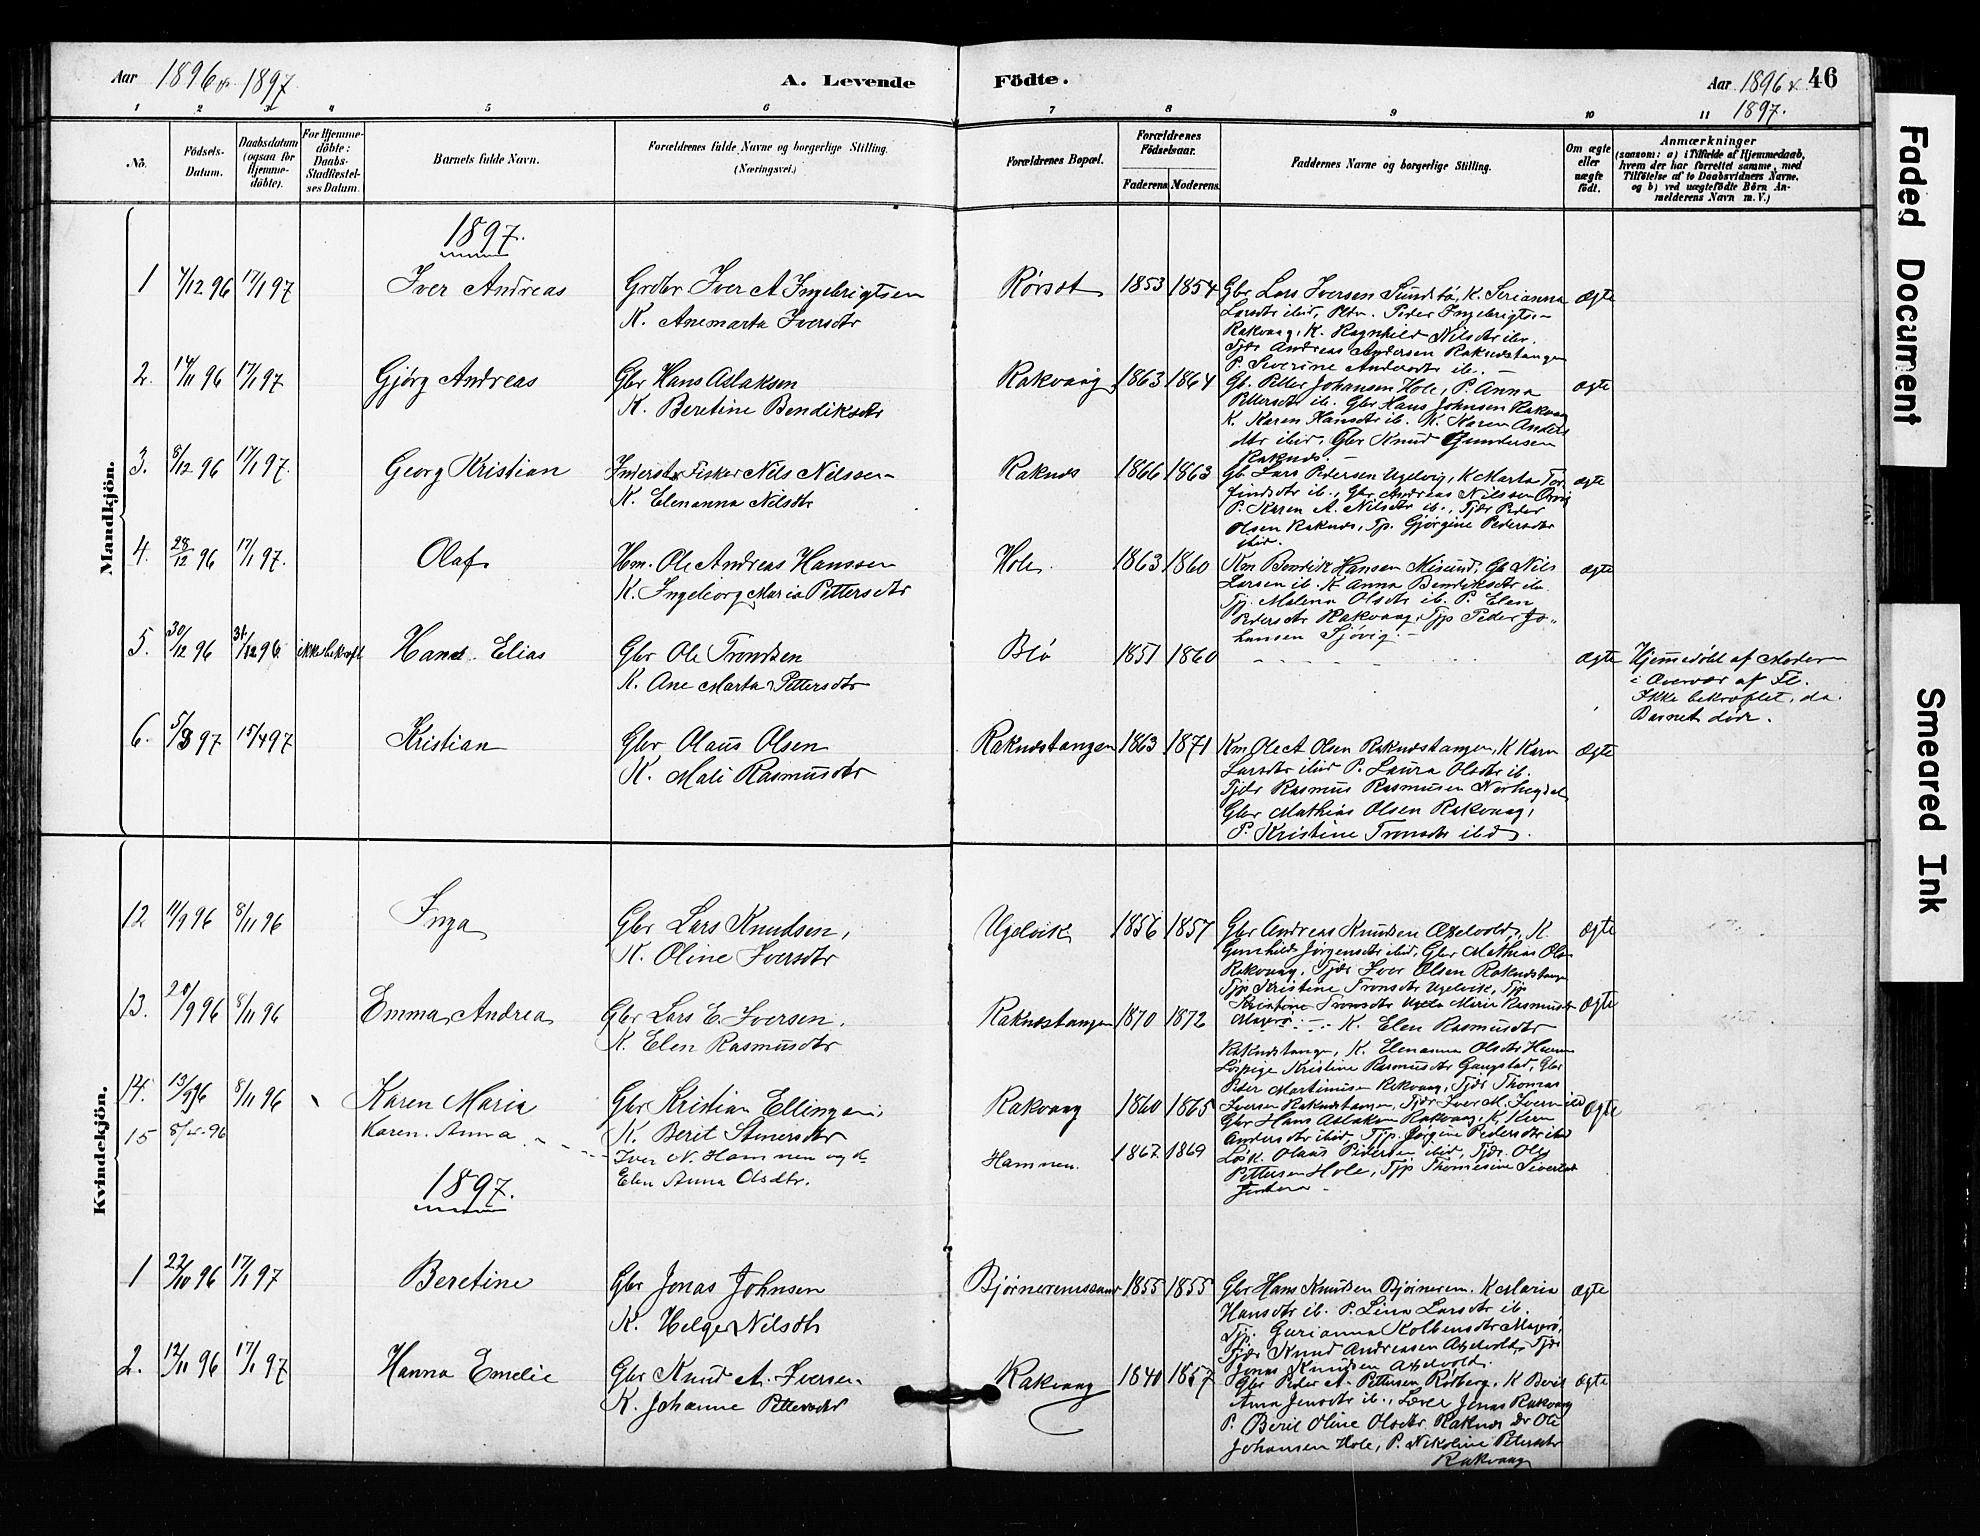 Aar 1896 & 1897.
A. Levende Födte.
Aar 1896 & 1897.
46
1 2 3 4 5 6 7 8 9 10 11
No.
Födsels-Datum.
Daabsdatum (ogsaa for Hjemme-döbte).
For Hjemme-döbte: Daabs-Stadfæstel-ses Datum.
Barnets fulde Navn.
Forældrenes fulde Navne og borgerlige Stilling.
(Næringsvei.)
Forældrenes Bopæl.
Forældrenes Födselsaar.
Faderens Moderens
Faddernes Navne og borgerlige Stilling.
Om ægte eller uægte født.
Anmærkninger
(saasom: a) i Tilfælde af Hjemmedaab, hvem der har forrettet samme, med Tilföielse af to Daabsvidners Navne, og b) ved uægtefödte Börn An-melderens Navn m. V.)
Mandkjön.
1897.
1 7/12 96 17/1 97 Iver Andreas Grdbr Iver A Ingebrigtsen Rørset 1853 1854 Gbr Lars Iversen Sundsbø, K. Serianna ægte
K. Anemarta Iversdtr
Larsdtr ibid, Peder Ingebrigtsen
Rakvaag, K. Ragnhild Nilsdtr ibr.
Tjdr Andreas Andersen Raknestangen
P. Severine Andersdtr ib.
2. 14/11 96 17/1 97 Gjørg Andreas Gbr Hans Aslaksen Rakvaag 1863 1864 Gb. Petter Johansen Hole, P. Anna ægte
K. Beretine Bendiksdtr
Pettersdtr ib. Gbr Hans Johnsen Rakvaag
K. Karen Hansdtr ib. K. Karen Anders
dtr ibid, Gbr Knud Gundersen
Raknes.
3. 8/12 96 17/1 97. Georg Kristian Inderst Fisker Nils Nilssen Raknes 1866 1863 Gb Lars Pedersen Ugelvig, K Marta Tor ægte
K. Elenanna Nilsdtr
findsdtr ib., Gbr Andreas Nilssen Orvig
P. Karen A. Nilsdtr ib., Tjdr Peder
Olsen Raknes, Tp. Gjørgine Pedersdtr
ibid.
4. 28/12 96 17/1 97. Olaf Hm. Ole Andreas Hanssen Hole 1863 1860 Km Bendik Hansen Misund, Gb Nils ægte
K. Ingeborg Maria Pettersdtr
Larsen ib. K Anna Bendiksdtr ib.
Tjp. Malena Olsdtr ib. P. Elen
Pedersdtr Rakvaag, Tjp Peder Jo-
hansen Sjøvig.
5. 30/12 96 31/12 96 ikke bekræft Hans Elias Gbr Ole Trondsen Blø 1851 1860 ægte Hjemmedøbt af Moderen
K. Ane Marta Pettersdtr
i Overvær af Fl.
Ikke bekræftet, da
Barnet døde.
6. 5/3 97 15/4 97 Kristian Gbr Olaus Olsen Raknestangen 1863 1871 Km Ole A Olsen Raknestangen, K Karn ægte
K. Mali Rasmusdtr
Larsdtr ibid P. Laura Olsdtr ib.
Tjdr Rasmus Rasmusen
Gbr Mathias Olsen Rakvaag,
P. Kristine Tronsdtr ibid.
Kvindekjön.
12 11/9 96 8/11 96 Inga Gbr Lars Knudsen, Ugelvik 1856 1857 Gbr Andreas Knudsen Oxelvold, K. ægte
K. Oline Iversdtr
Gunhild Jørgensdtr ibid, Gbr Mathias Ols
Rakvaag, Tjdr Iver Olsen Raknestangen
Tjp Kristine Tronsdtr Ugelvik, Tjp
13. 20/9 96 8/11 96 Emma Andrea Gbr Lars E. Iversen. Raknestangen 1870 1872 Kristine Tronsdtr Marie Rasmusdtr ægte
K. Elen Rasmusdtr
Majerø. K. Elen Rasmusdtr
Raknestangen, K. Elenanna Olsdtr Hamnen
Løspige Kristine Rasmusdtr Gangstad, Gbr
Peder Martinusen Rakvaag, Tjdr Thomas
14. 13/9 96 8/11 96 Karen Maria Gbr Kristian Ellingsen, Rakvaag 1860 1865 Iversen Raknestangen, Tjdr Iver M. Iversen ibid ægte
K. Berit Steinersdtr
Gbr Hans Aslaksen Rakvaag, K. Karen
15 96 Karen Anna Iver N. Hamnen og K Hamnen. 1867 1869
Elen Anna Olsdtr.
Andersdtr ibid, Tjp. Jørgine Pedersdtr ibid
Løsk. Olaus Pedersen ibid, Tjdr. Ols
Pettersen Hole, Tjp Thomesine Sivertsdtr
1897.
1 22/10 96 17/1 97 Beretine Gbr Jonas Johnsen Bjørneremssund 1855 1855 Gbr Hans Knudsen Bjørnerem. K Maria ægte
K. Helge Nilsdtr
Hansdtr ib. P. Lina Larsdtr ib.
Tjp. Gurianna Kolbensdtr Majerø,
Tjdr Knud Andreasen Oxelvold, Tjdr
Jonas Knudsen Oxelvold.
2. 12/11 96 17/1 97 Hanna Emelie Gbr Knud A. Iversen Rakvaag 1840 1857 Gbr Peder A. Pettersen Rødberg, K Berit ægte
K. Johanne Pettersdtr
Anna Jensdtr ib., Lærer Jenas Rakvaag
P. Berit Oline Olsdtr Raknes Dr Ole
Johansen Hole, P. Nikoline Petersdtr
Rakvaag
Faded Document
Smeared Ink